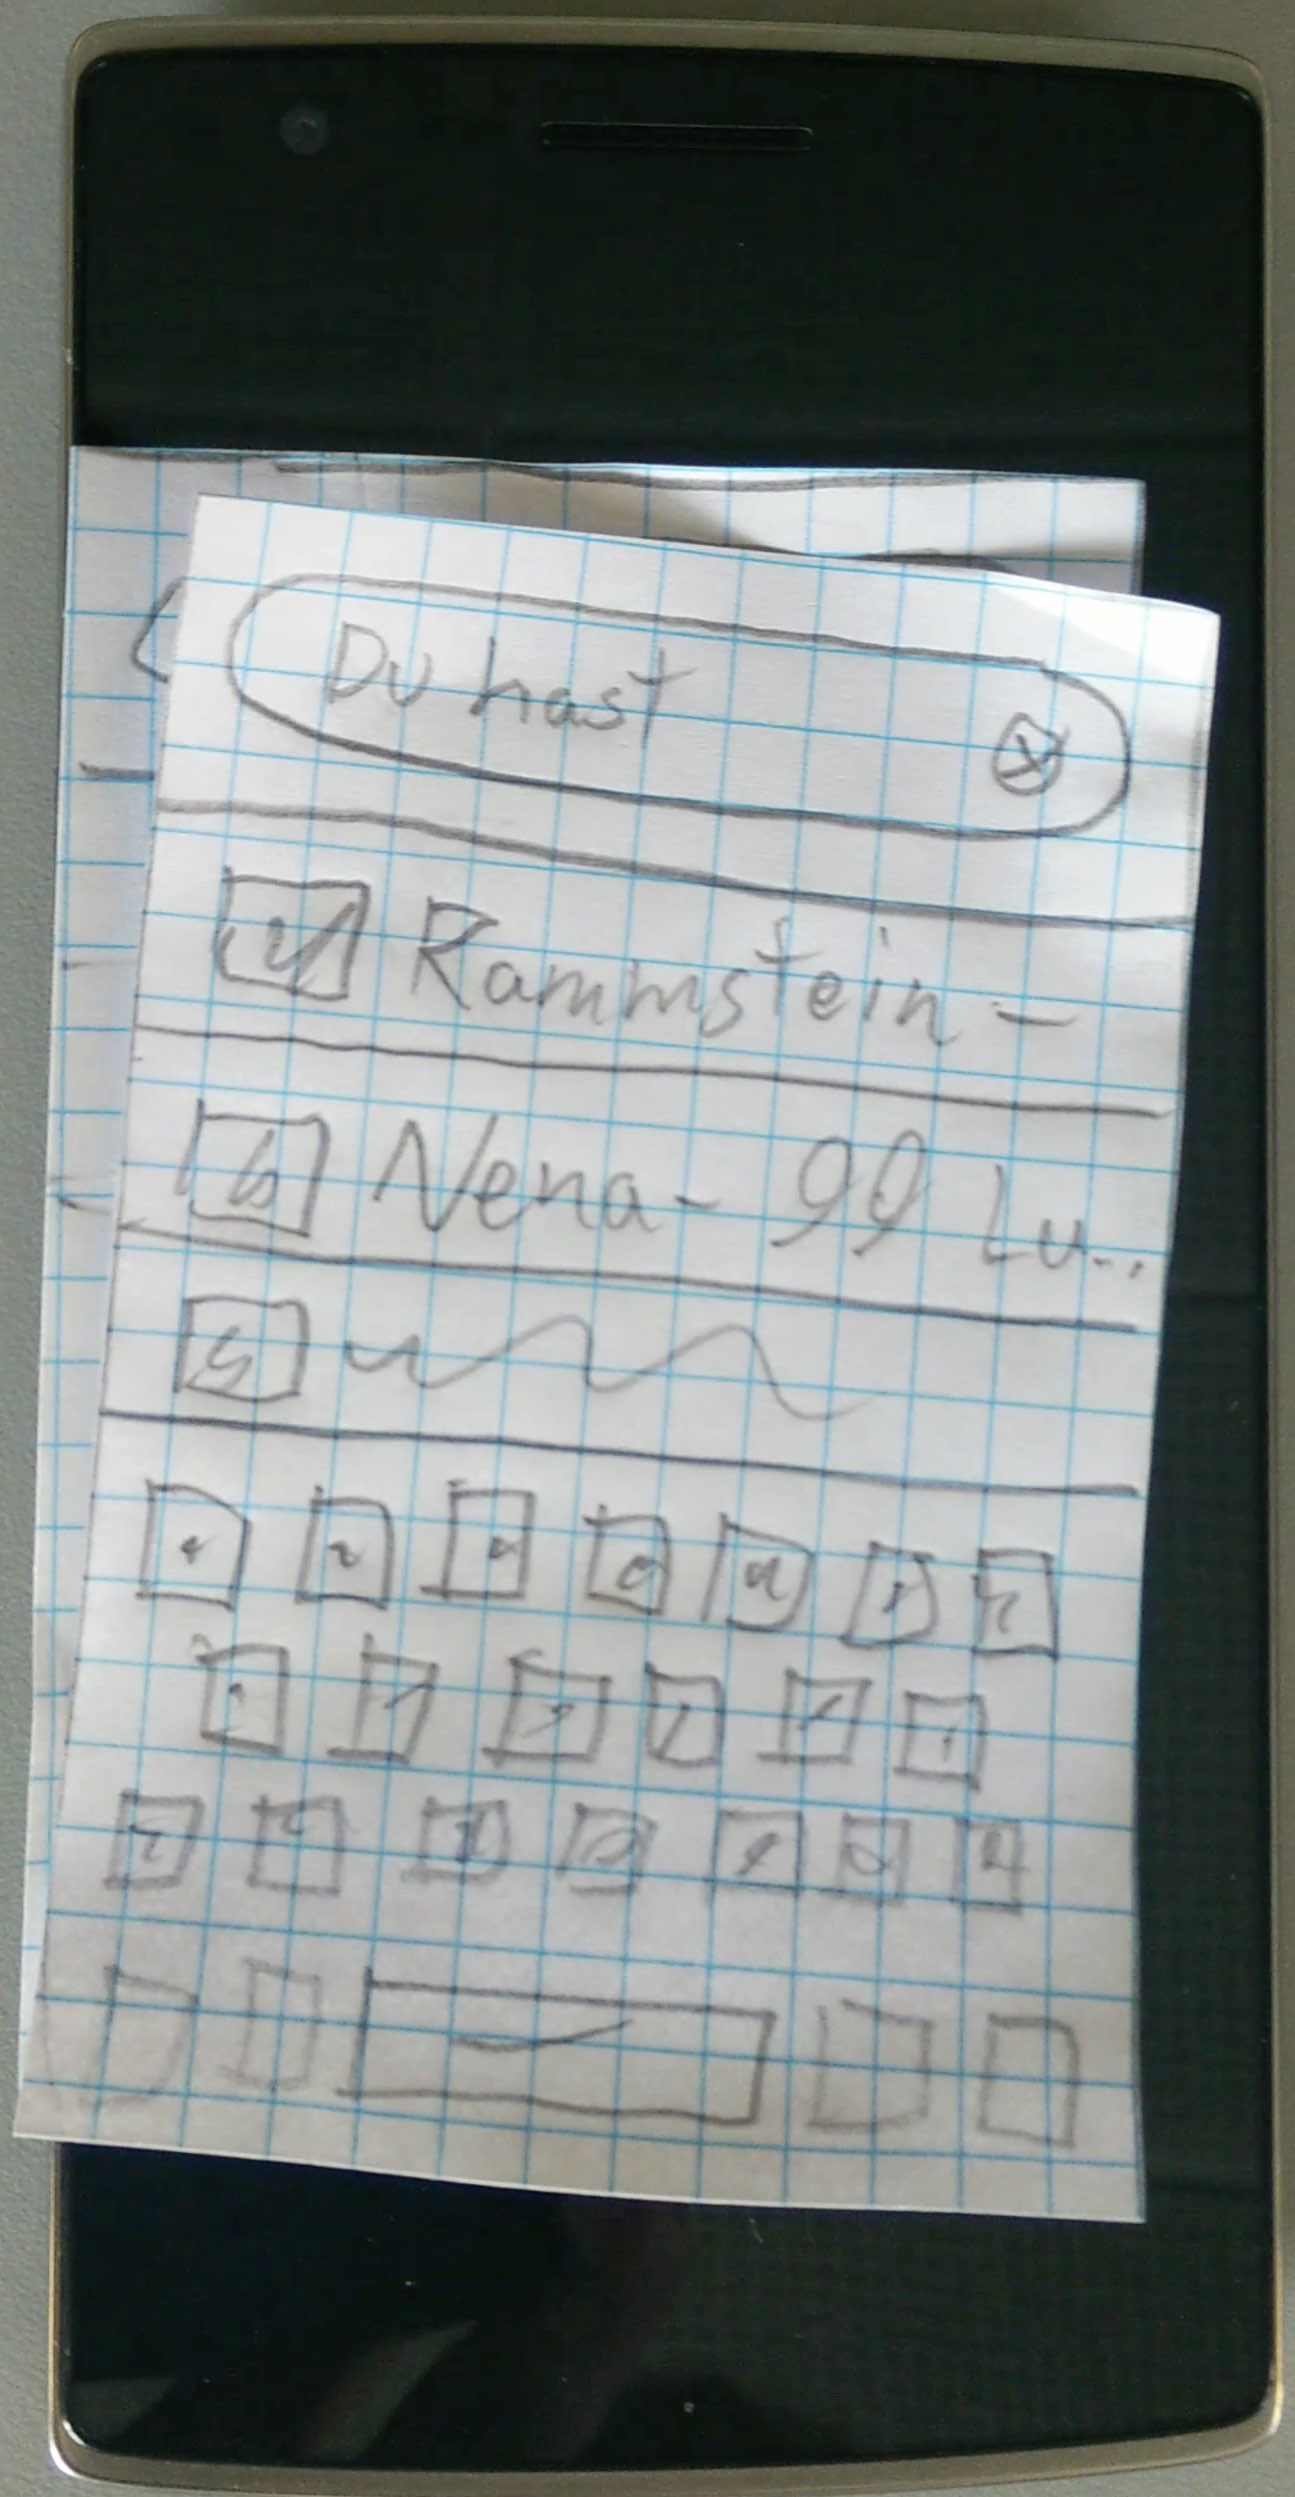 Du hast
Rammstein -
Nena - 99 Lu...